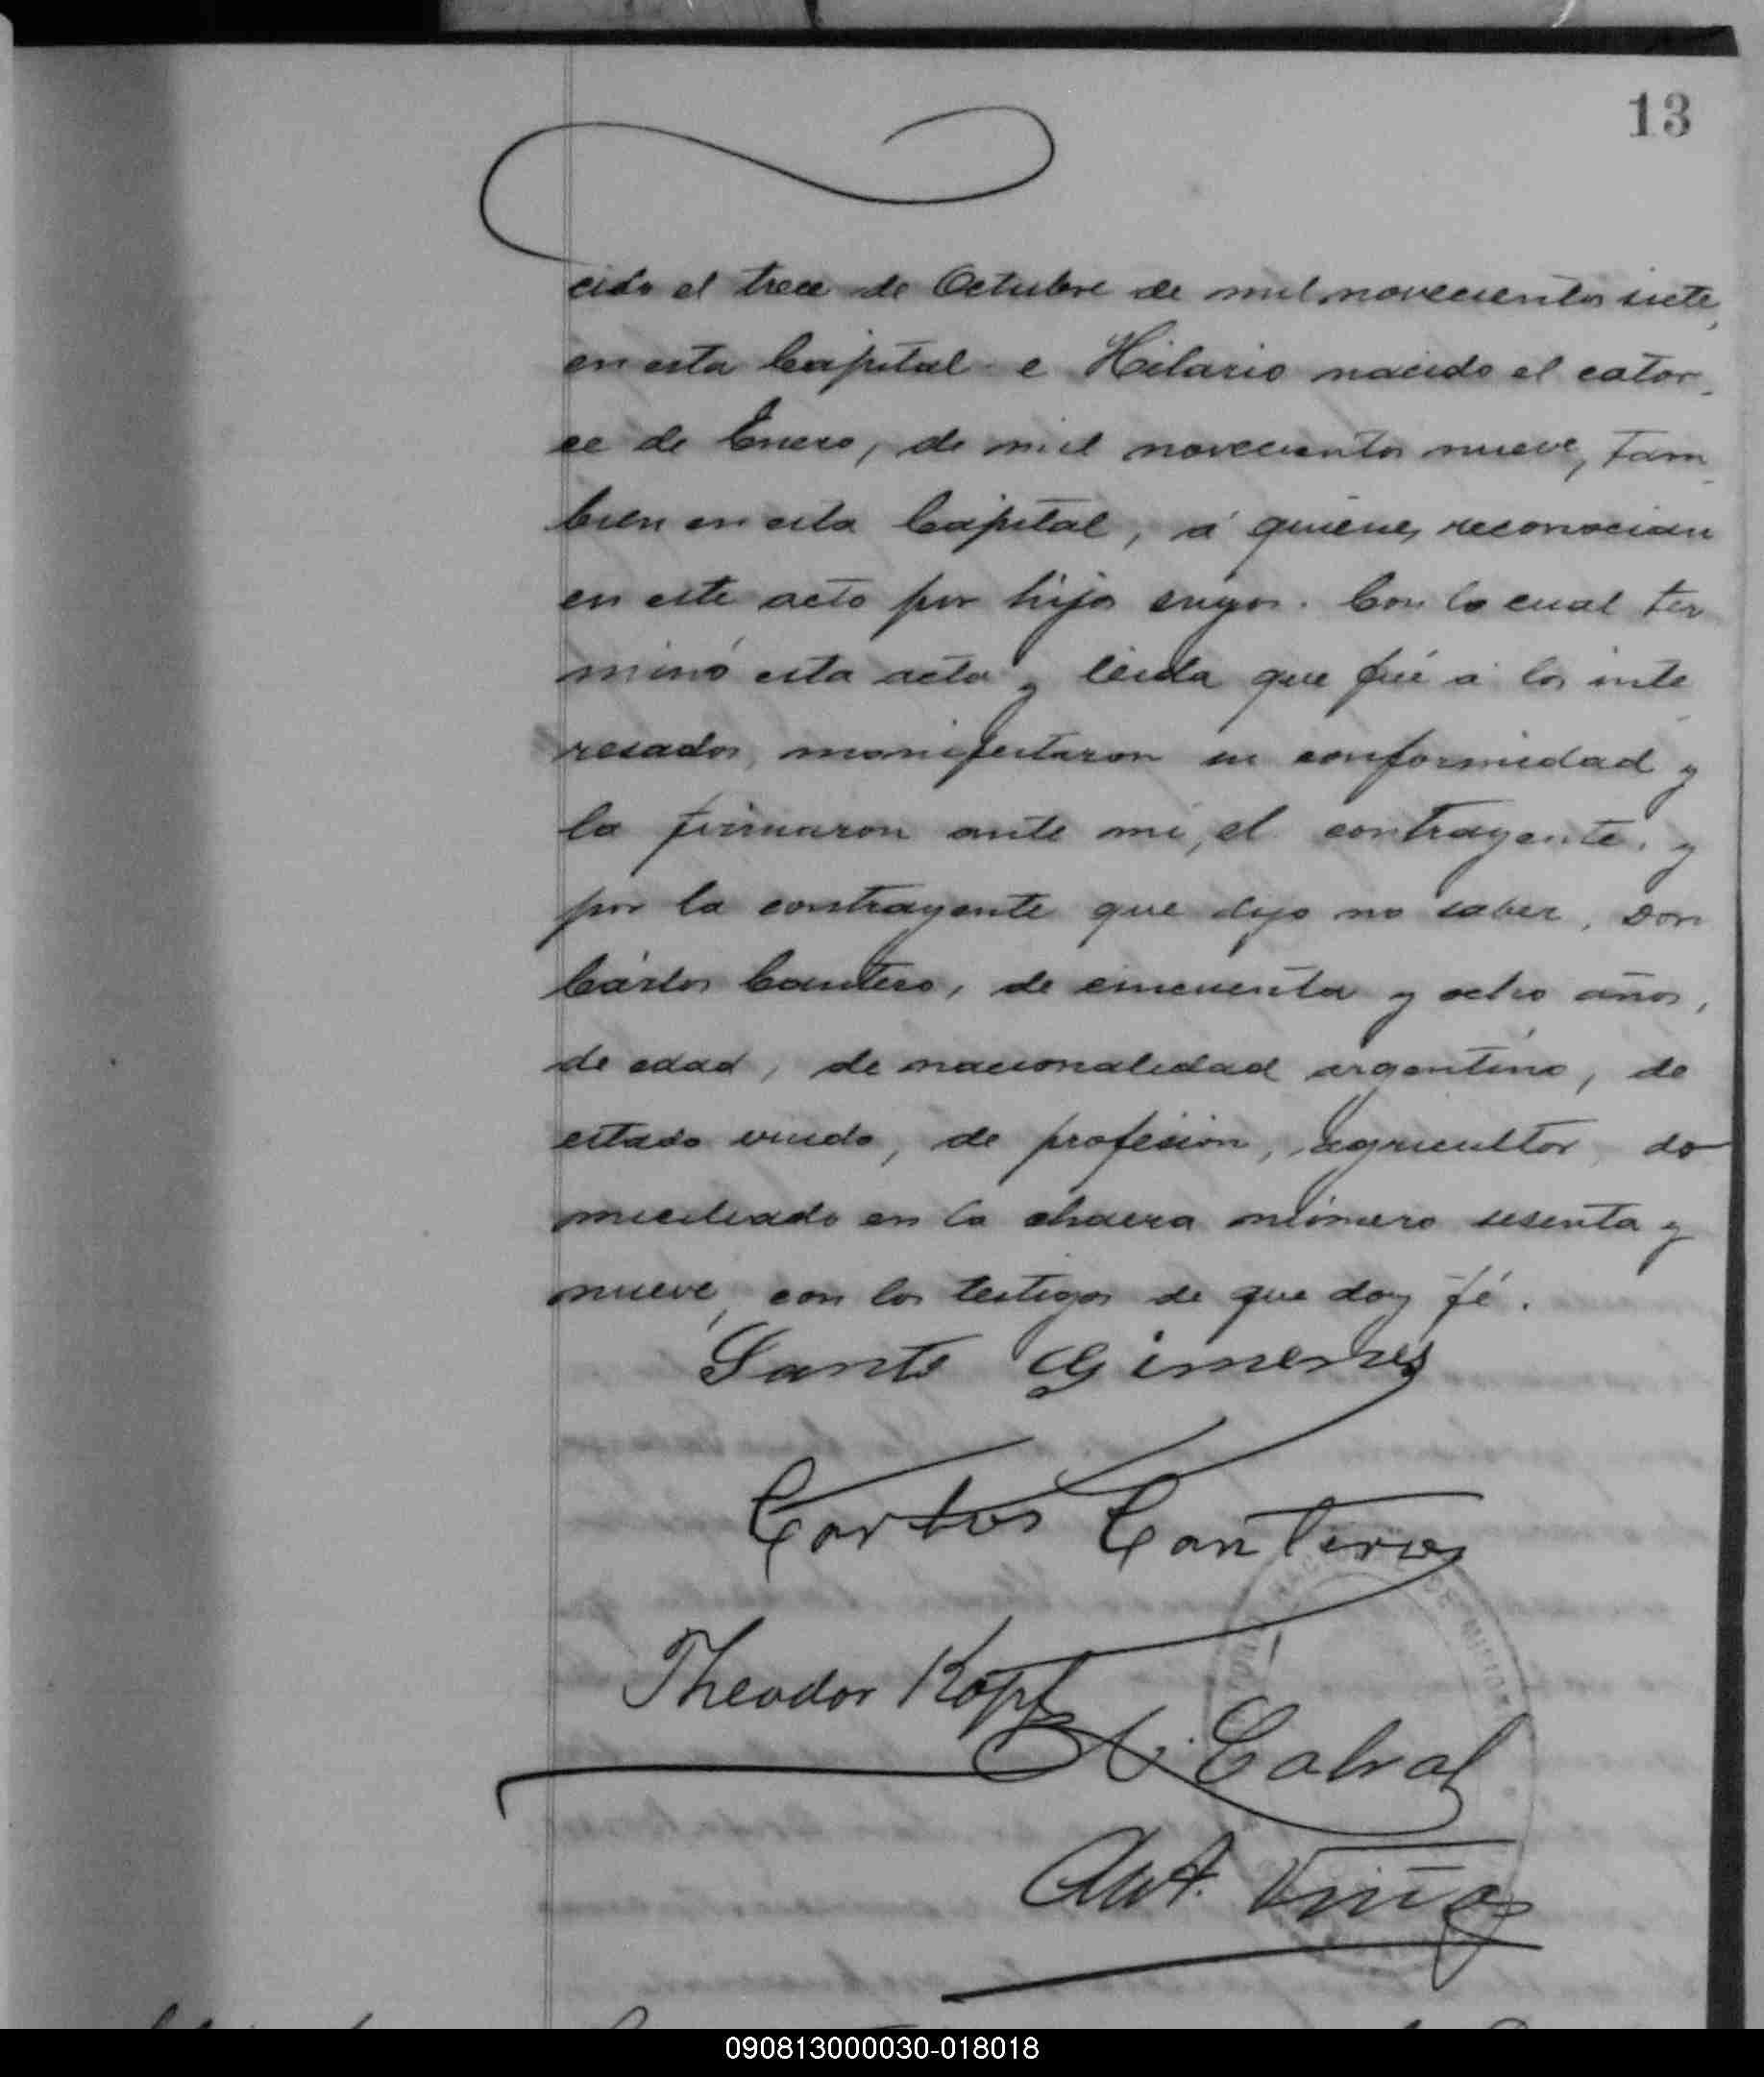 13
cido el trece de Octubre de mil novecientos siete,
en esta Capital e Hilario nacido el cator_
ce de Enero, de mil novecientos nueve, tam_
bien en esta Capital, á quienes reconocian
en este acto por hijos suyos. Con lo cual ter
minó esta acta y leida que fué á los inte_
resados, manifestaron su conformidad y
la firmaron ante mi, el contrayente, y
por la contrayente que dijo no saber, Don
Cárlos Cantero, de cincuenta y ocho años,
de edad, de nacionalidad argentino, de
estado viudo, de profesion, agricultor, do
miciliado en la chacra número sesenta y
nueve, con los testigos de que doy fé.
Santo Gimenes
Carlos Cantero
Theodor Kopf
Cabral
Ant. Viña
090813000030-018018